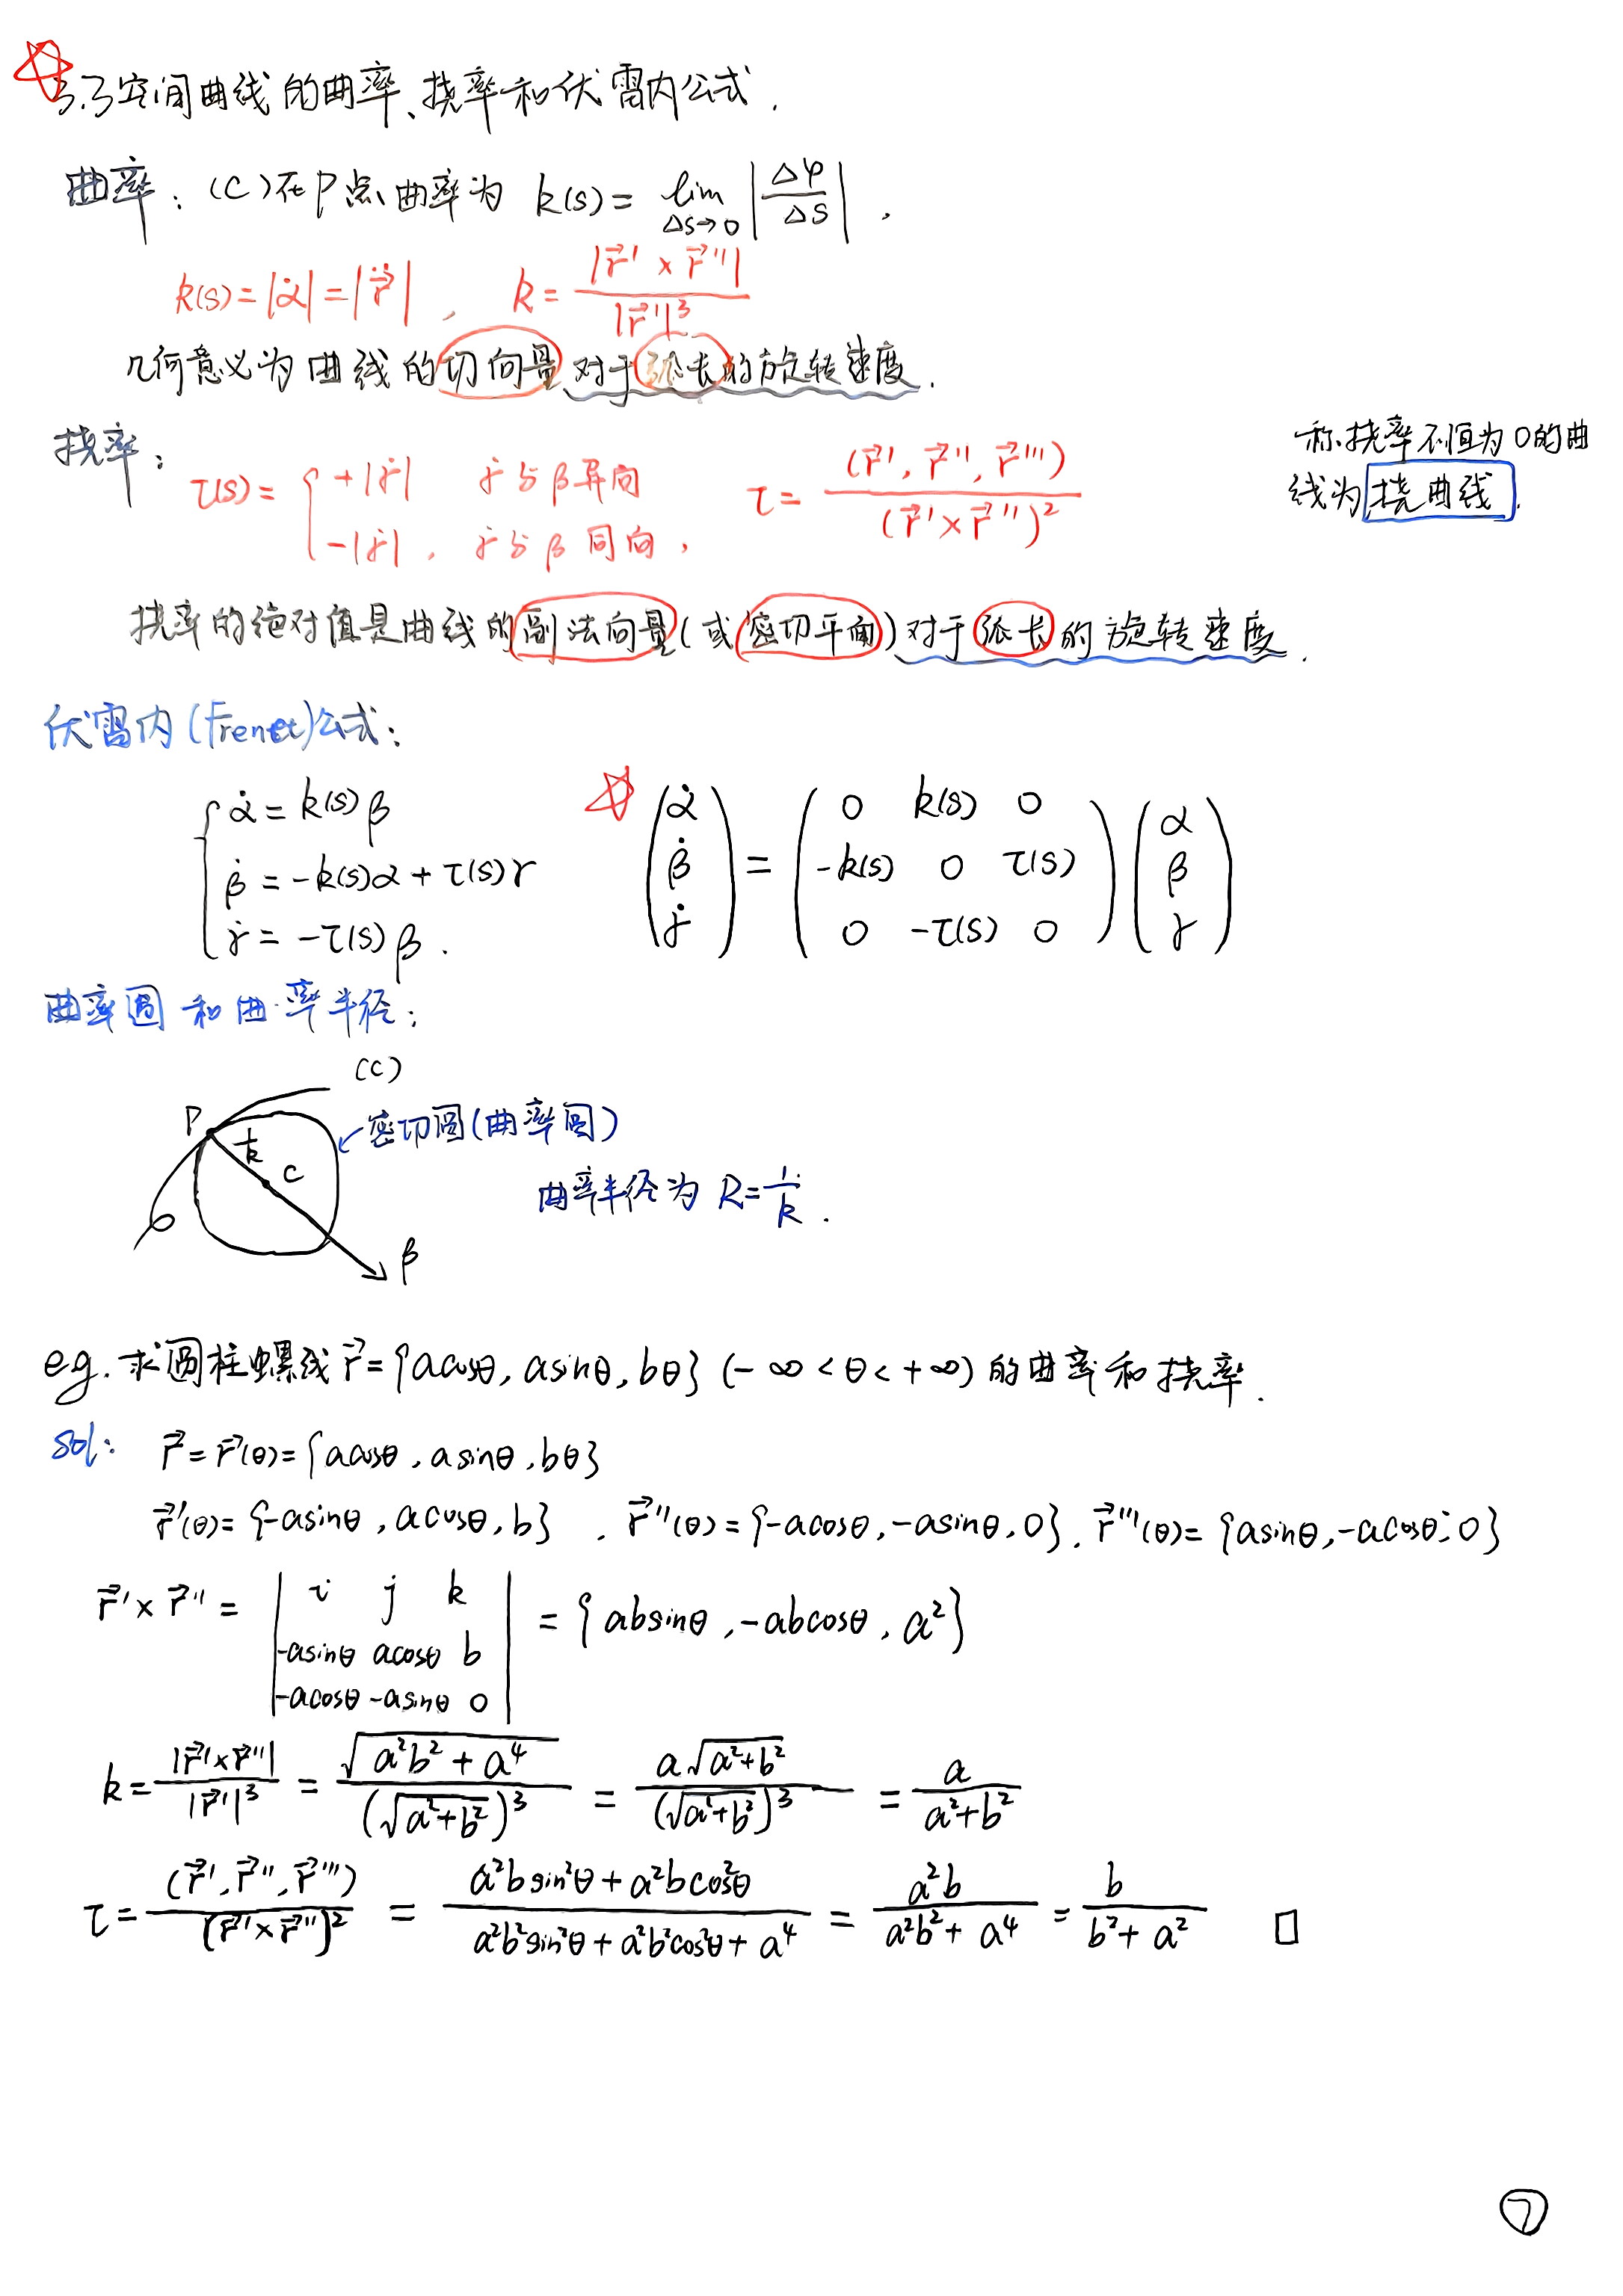 3.3 空间曲线的曲率、挠率和伏雷内公式.
曲率: (C)在P点曲率为 k(s) = lim_{Δs→0} |Δφ/Δs| .
k(s) = |α̇| = |r̈⃗| , k = |r⃗' × r⃗''| / |r⃗'|³
几何意义为曲线的切向量对于弧长的旋转速度.
挠率: τ(s) = { +|γ̇| γ̇与β异向
-|γ̇| , γ̇与β同向,
τ = (r⃗', r⃗'', r⃗''') / (r⃗' × r⃗'')²
称挠率不恒为0的曲
线为挠曲线.
挠率的绝对值是曲线的副法向量(或密切平面)对于弧长的旋转速度.
伏雷内(Frenet)公式:
{ α̇ = k(s)β
β̇ = -k(s)α + τ(s)γ
γ̇ = -τ(s)β .
(α̇ β̇ γ̇) = ( 0 k(s) 0
-k(s) 0 τ(s)
0 -τ(s) 0 ) (α β γ)
曲率圆和曲率半径:
(C)
P
1/k
C
β
密切圆(曲率圆)
曲率半径为 R = 1/k .
e.g. 求圆柱螺线 r⃗ = {acosθ, asinθ, bθ} (-∞ < θ < +∞) 的曲率和挠率.
sol: r⃗ = r⃗(θ) = {acosθ, asinθ, bθ}
r⃗'(θ) = {-asinθ, acosθ, b} , r⃗''(θ) = {-acosθ, -asinθ, 0} , r⃗'''(θ) = {asinθ, -acosθ, 0}
r⃗' × r⃗'' = | i j k
-asinθ acosθ b
-acosθ -asinθ 0 | = {absinθ, -abcosθ, a²}
k = |r⃗' × r⃗''| / |r⃗'|³ = √(a²b² + a⁴) / (√(a²+b²))³ = a√(a²+b²) / (√(a²+b²))³ = a / (a²+b²)
τ = (r⃗', r⃗'', r⃗''') / (r⃗' × r⃗'')² = (a²bsin²θ + a²bcos²θ) / (a²b²sin²θ + a²b²cos²θ + a⁴) = a²b / (a²b² + a⁴) = b / (b² + a²) □
⑦